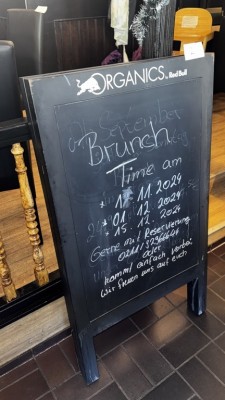 ORGANICS. by Red Bull
Brunch
Time am
17. 11. 2024
01. 12. 2024
15. 12. 2024
Gerne mit Reservierung
oder
kommt einfach vorbei
Wir freuen uns auf euch